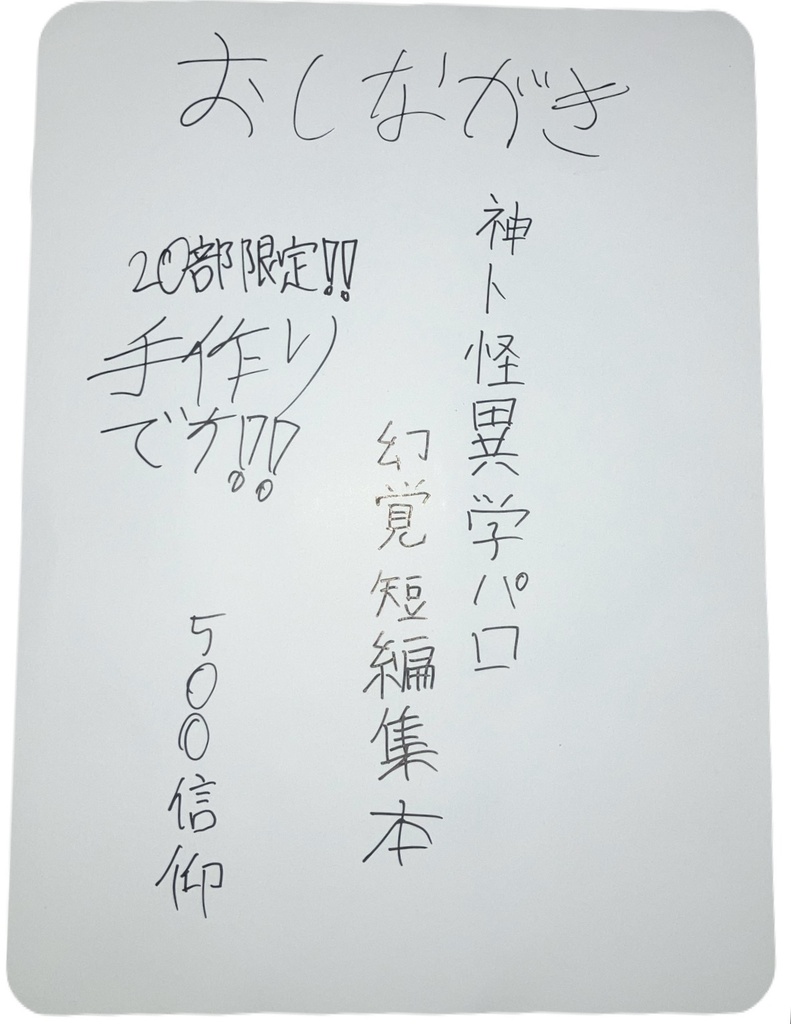 おしながき
神ト怪異学パロ
幻覚短編集本
20部限定!!
手作り
です!!
500信仰